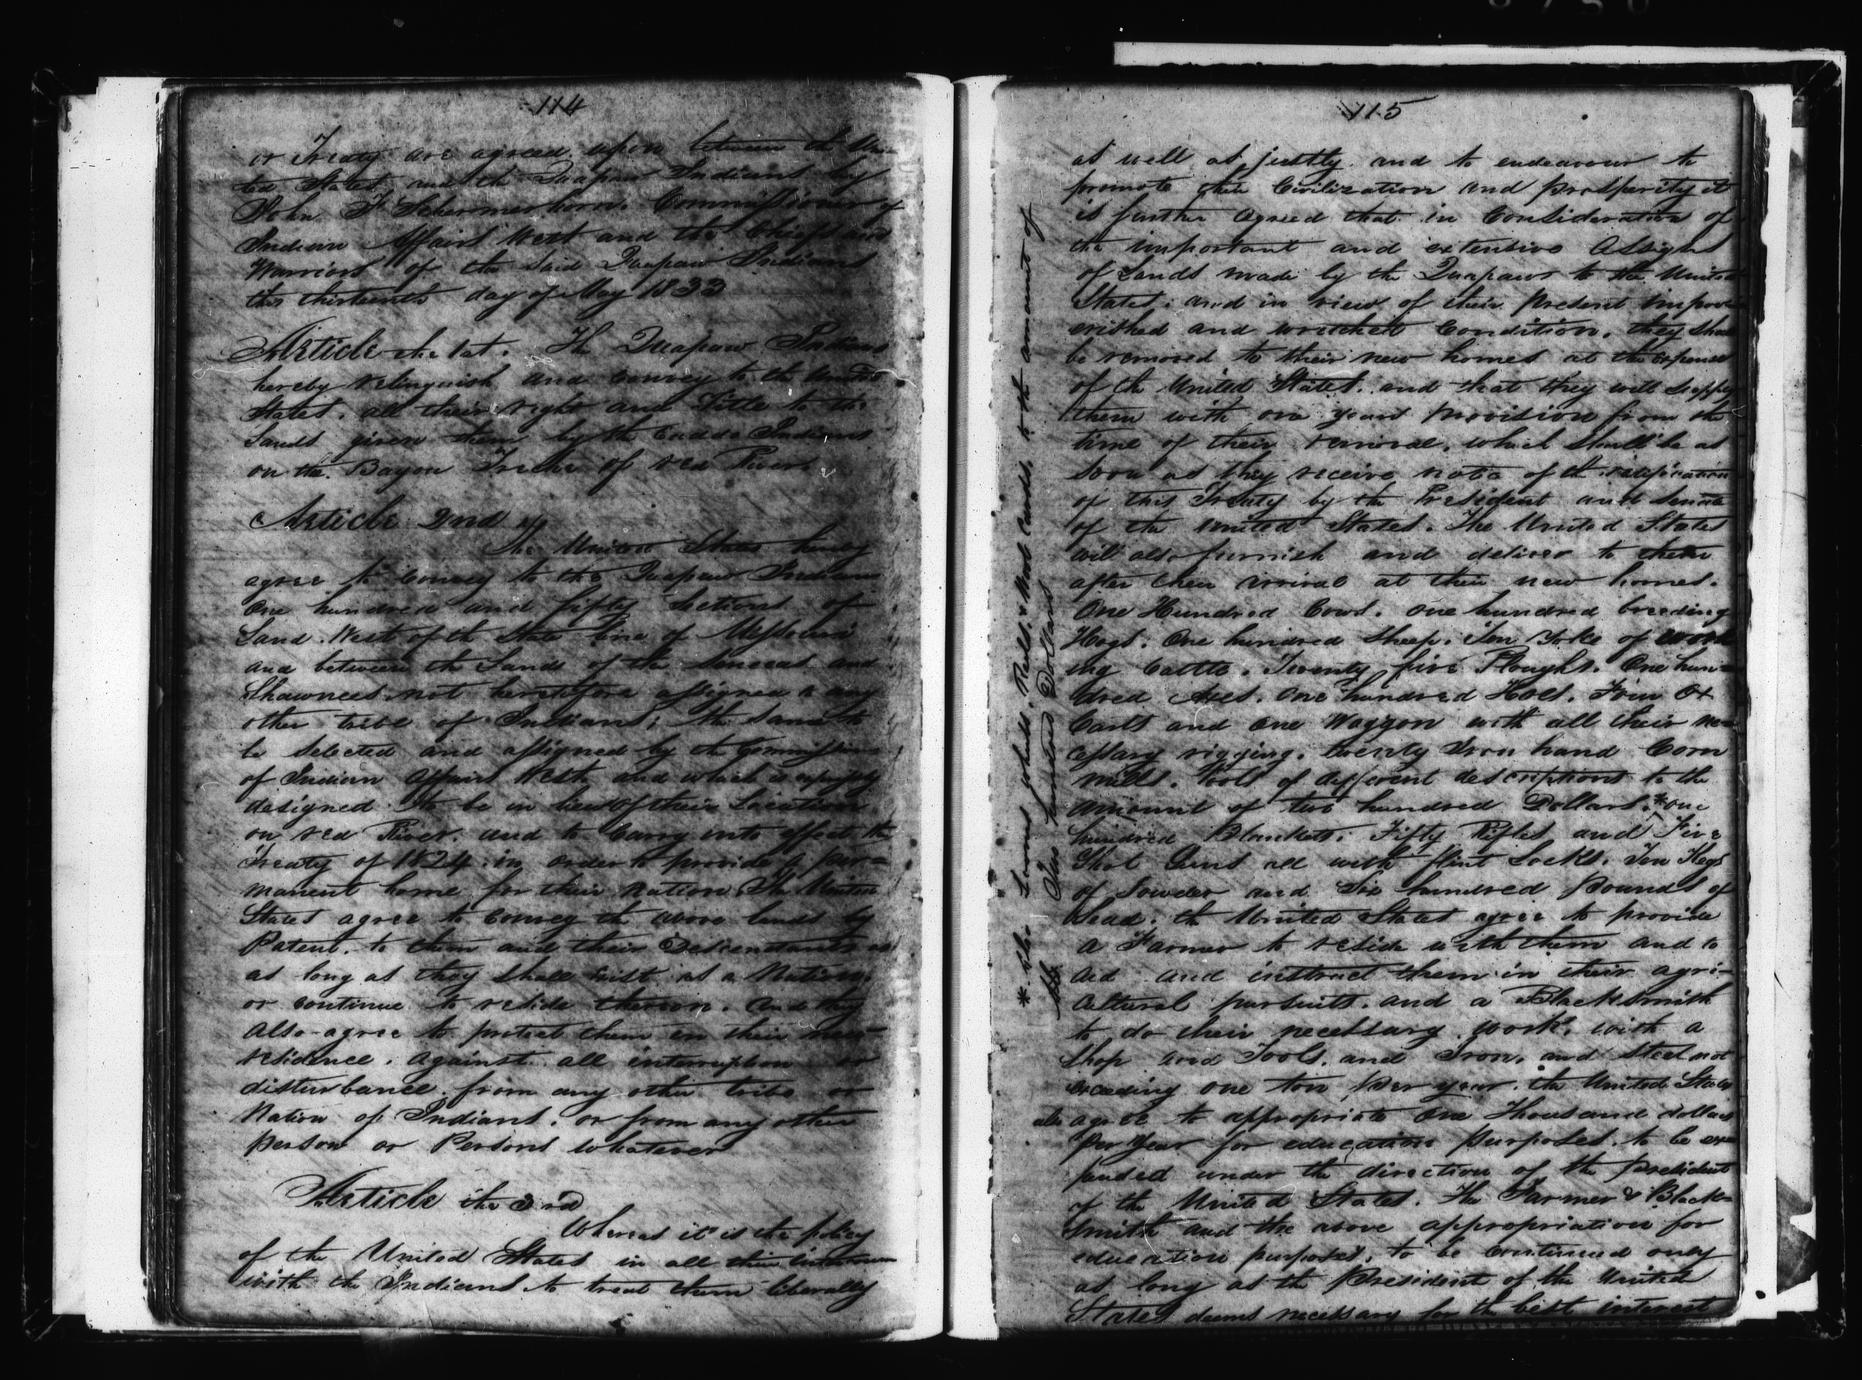 114
or Treaty are agreed upon between the Uni-
ted States and the Quapaw Indians by
John F Schermerhorn Commissioner of
Indian Affairs West and the Chiefs and
Warriors of the said Quapaw Indians
this thirteenth day of May 1833
Article the 1st. The Quapaw Indians
hereby relinquish and convey to the United
States. all their right and Title to the
Lands given them by the Caddo Indians
on the Bayou Treache of red River.
Article 2nd
The United States hereby
agree to Convey to the Quapaw Indians
One hundred and fifty Sections of
Land West of the State line of Missouri
and between the Lands of the Senecas and
Shawnees not heretofore assigned to any
other tribe of Indians; the same to
be selected and assigned by the Commissioners
of Indian Affairs West. and which is expressly
designed to be in lieu of their Location
on red River. and to Carry into effect the
Treaty of 1824. in order to provide a per-
manent home for their nation The United
States agree to convey the above lands by
Patent. to them and their Descendants
as long as they shall exist as a Nation
or continue to reside thereon. and they
also agree to protect them in their new
residence. against all interruption or
disturbance from any other tribe or
Nation of Indians. or from any other
Person or Persons whatever
Article the 3rd
Whereas it is the policy
of the United States in all their intercourse
with the Indians to treat them liberally
115
as well as justly. and to endeavour to
promote their Civilization and prosperity it
is further agreed that in Consideration of
the important and extensive
of Lands made by the Quapaws to the United
States. and in view of their present impov-
erished and wretched Condition. they shall
be removed to their new homes at the expense
of the United States. and that they will supply
them with one years provision from the
time of their removal. which shall be as
soon as they receive note of the ratification
of this Treaty by the President and Senate
of the United States. The United States
will also furnish and deliver to them
after their arrival at their new homes.
One Hundred Cows. one hundred breeding
Hogs. One hundred Sheep. Ten Yoke of work
ing Cattle. Twenty five Ploughs. One hun-
dred Axes. One hundred Hoes. Four Ox
Carts and one Waggon with all their ne-
cessary rigging. twenty Iron hand Corn
Mills. Tools of different descriptions to the
amount of two hundred Dollars * one
hundred Blankets. Fifty Rifles and Five
Shot Guns all with flint Locks. Ten Kegs
of Powder and Six hundred Pounds of
Lead. the United States agree to provide
a Farmer to reside with them and to
aid and instruct them in their agri-
cultural pursuits. and a Blacksmith
to do their necessary work. with a
Shop and Tools. and Iron. and Steel not
exceeding one ton per year. the United States
also agree to appropriate One Thousand dollars
Per Year for education purposes. to be ex-
pended under the direction of the president
of the United States. The Farmer & Black-
smith and the above appropriation for
education purposes. to be continued only
as long as the President of the United
States deems necessary for the best interest
* Looms wheels. Reels. & Wool Cards. to the amount of
Two hundred Dollars